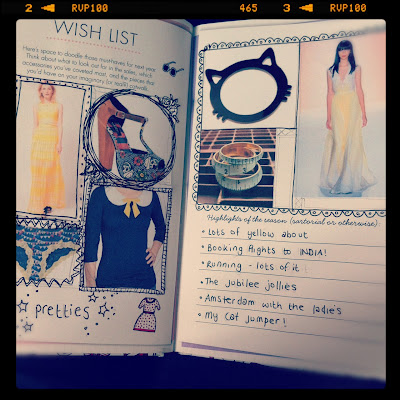 2 ◀ RVP100 465 3 ◀ RVP100
WISH LIST
Here's space to doodle those must-haves for next year.
Think about what to look out for in the sales, which
accessories you've coveted most, and the pieces that
you'd have on your imaginary (or real!) catwalk.
pretties
Highlights of the season (sartorial or otherwise)
• Lots of yellow about
• Booking flights to INDIA!
• Running - lots of it!
• The Jubilee jollies
• Amsterdam with the ladies
• My Cat jumper!